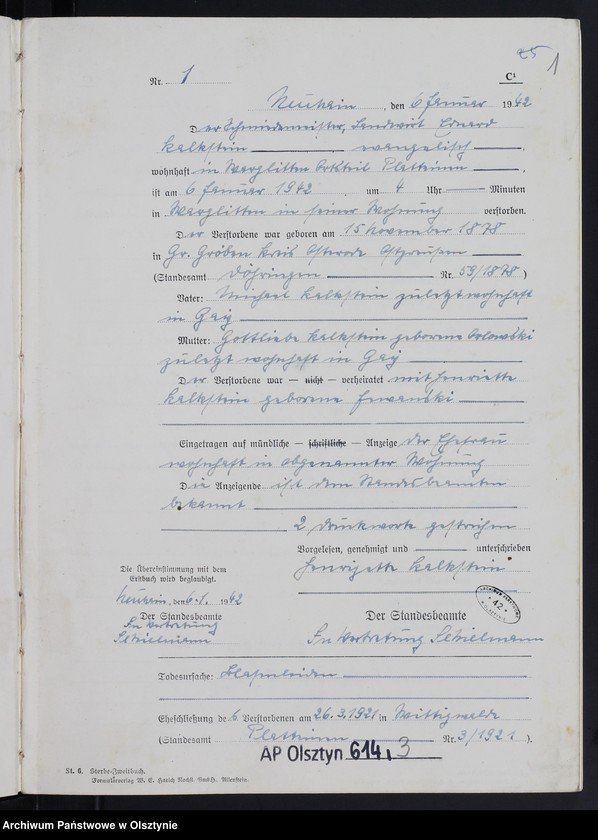 25 1
Nr. 1 C¹
Neuhain, den 6 Januar 1942
Der Schmiedemeister, Landwirt Eduard
Kalkstein evangelisch,
wohnhaft in Warglitten Ortsteil Plattainen,
ist am 6 Januar 1942 um 4 Uhr Minuten
in Warglitten in seiner Wohnung verstorben.
Der Verstorbene war geboren am 15 November 1878
in Gr. Gröben Kreis Osterode Ostpreußen
(Standesamt Döhringen Nr. 59/1878)
Vater: Michael Kalkstein zuletzt wohnhaft
in Gaij
Mutter: Gottliebe Kalkstein geborene Orlowski
zuletzt wohnhaft in Gaij
Der Verstorbene war — nicht — verheiratet mit Henriette
Kalkstein geborene
Eingetragen auf mündliche — schriftliche — Anzeige der Ehefrau
wohnhaft in obgenannter Wohnung
Die Anzeigende ist dem Standesbeamten
bekannt
2 Druckworte gestrichen
Vorgelesen, genehmigt und unterschrieben
Henriette Kalkstein
Die Übereinstimmung mit dem
Erstbuch wird beglaubigt.
Neuhain, den 6.1. 1942
Der Standesbeamte
In Vertretung
Schielmann
42
Der Standesbeamte
In Vertretung Schielmann
Todesursache: Blasenleiden
Eheschließung des Verstorbenen am 26.3.1921 in Wittigwalde
(Standesamt Plattainen Nr. 3/1921).
AP Olsztyn 614, 3
St. 6. Sterbe-Zweitbuch.
Formularverlag W. E. Harich Nachf. GmbH. Allenstein.
Archiwum Państwowe w Olsztynie